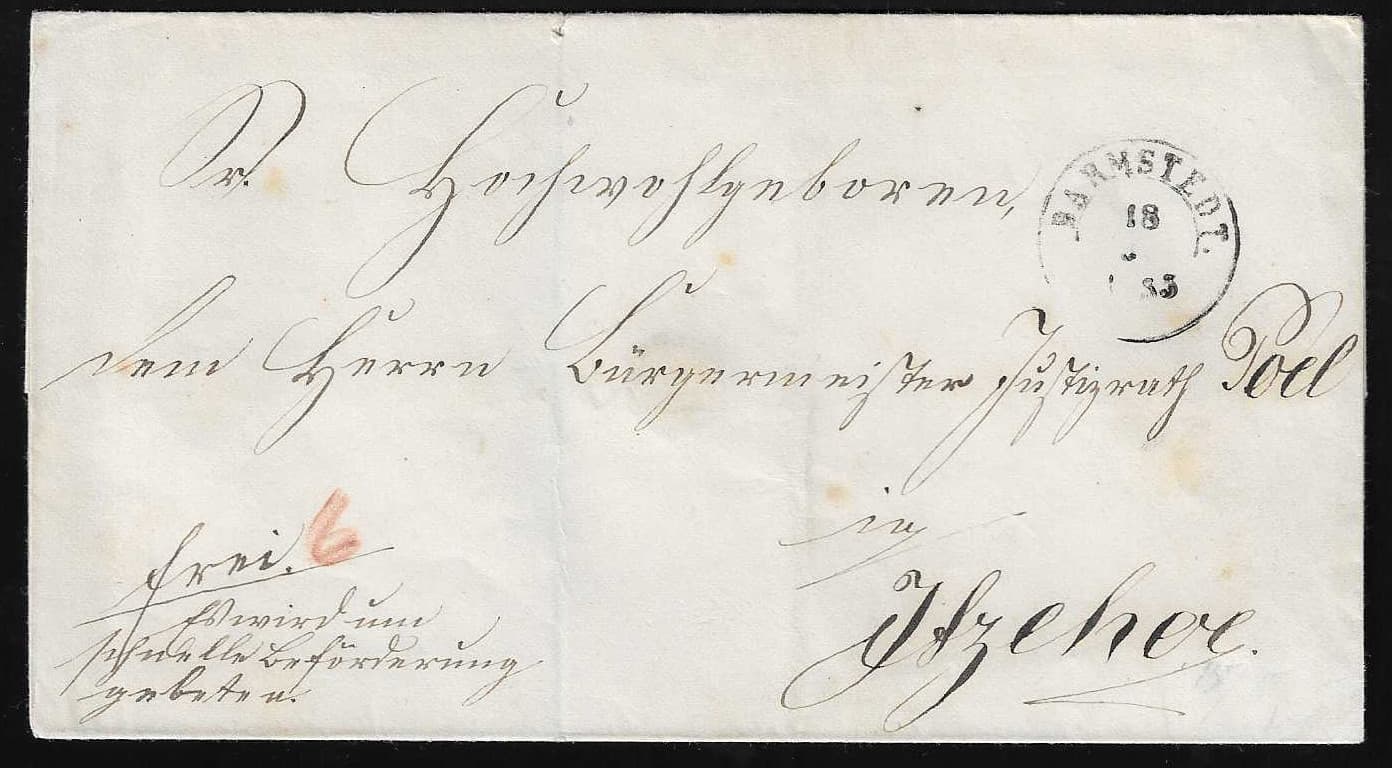 Sr. Hochwohlgeboren,
BARMSTEDT.
18
dem Herrn Bürgermeister Justizrath Poel
in
Itzehoe.
frei. 6
Es wird um
schnelle Beförderung
gebeten.